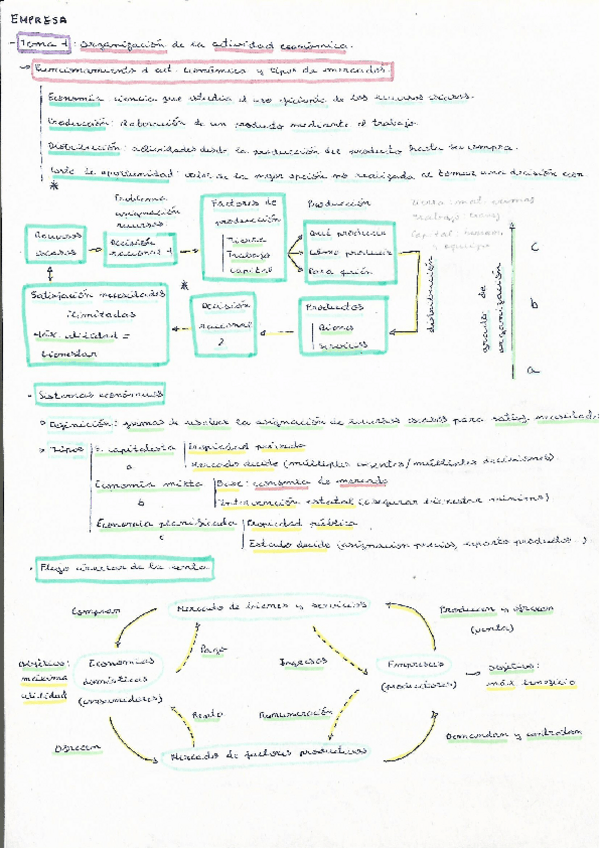 EMPRESA
- Tema 1: organización de la actividad económica.
Funcionamiento d act. económica y tipos de mercados.
Economía: ciencia que estudia el uso eficiente de los recursos escasos.
Producción: elaboración de un producto mediante el trabajo.
Distribución: actividades desde la producción del producto hasta su compra.
Coste de oportunidad: valor de la mejor opción no realizada al tomar una decisión econ
*
Problema asignación recursos
Factores de producción
Producción
Recursos escasos
Decisión racional 1
Tierra
Trabajo
Capital
Qué producir
Cómo producir
Para quién
distribución
grado de organización
c
b
a
Satisfacción necesidades ilimitadas
Máx. utilidad = bienestar
*
Decisión racional 2
Productos
Bienes
Servicios
- Sistemas económicos
Definición: formas de resolver la asignación de recursos escasos para satisf. necesidades
Tipos
S. capitalista
a
Propiedad privada
Mercado decide (múltiples agentes/múltiples decisiones)
Economía mixta
b
Base: economía de mercado
Intervención estatal (asegurar bienestar mínimo)
Economía planificada
c
Propiedad pública
Estado decide (asignación precios, reparto productos..)
- Flujo circular de la renta
Compran
Mercado de bienes y servicios
Producen y ofrecen (venta)
Pago
Ingresos
Objetivo: máxima utilidad
Economías domésticas (consumidores)
Empresas (productores)
Objetivo: máx beneficio
Renta
Remuneración
Ofrecen
Mercado de factores productivos
Demandan y contratan